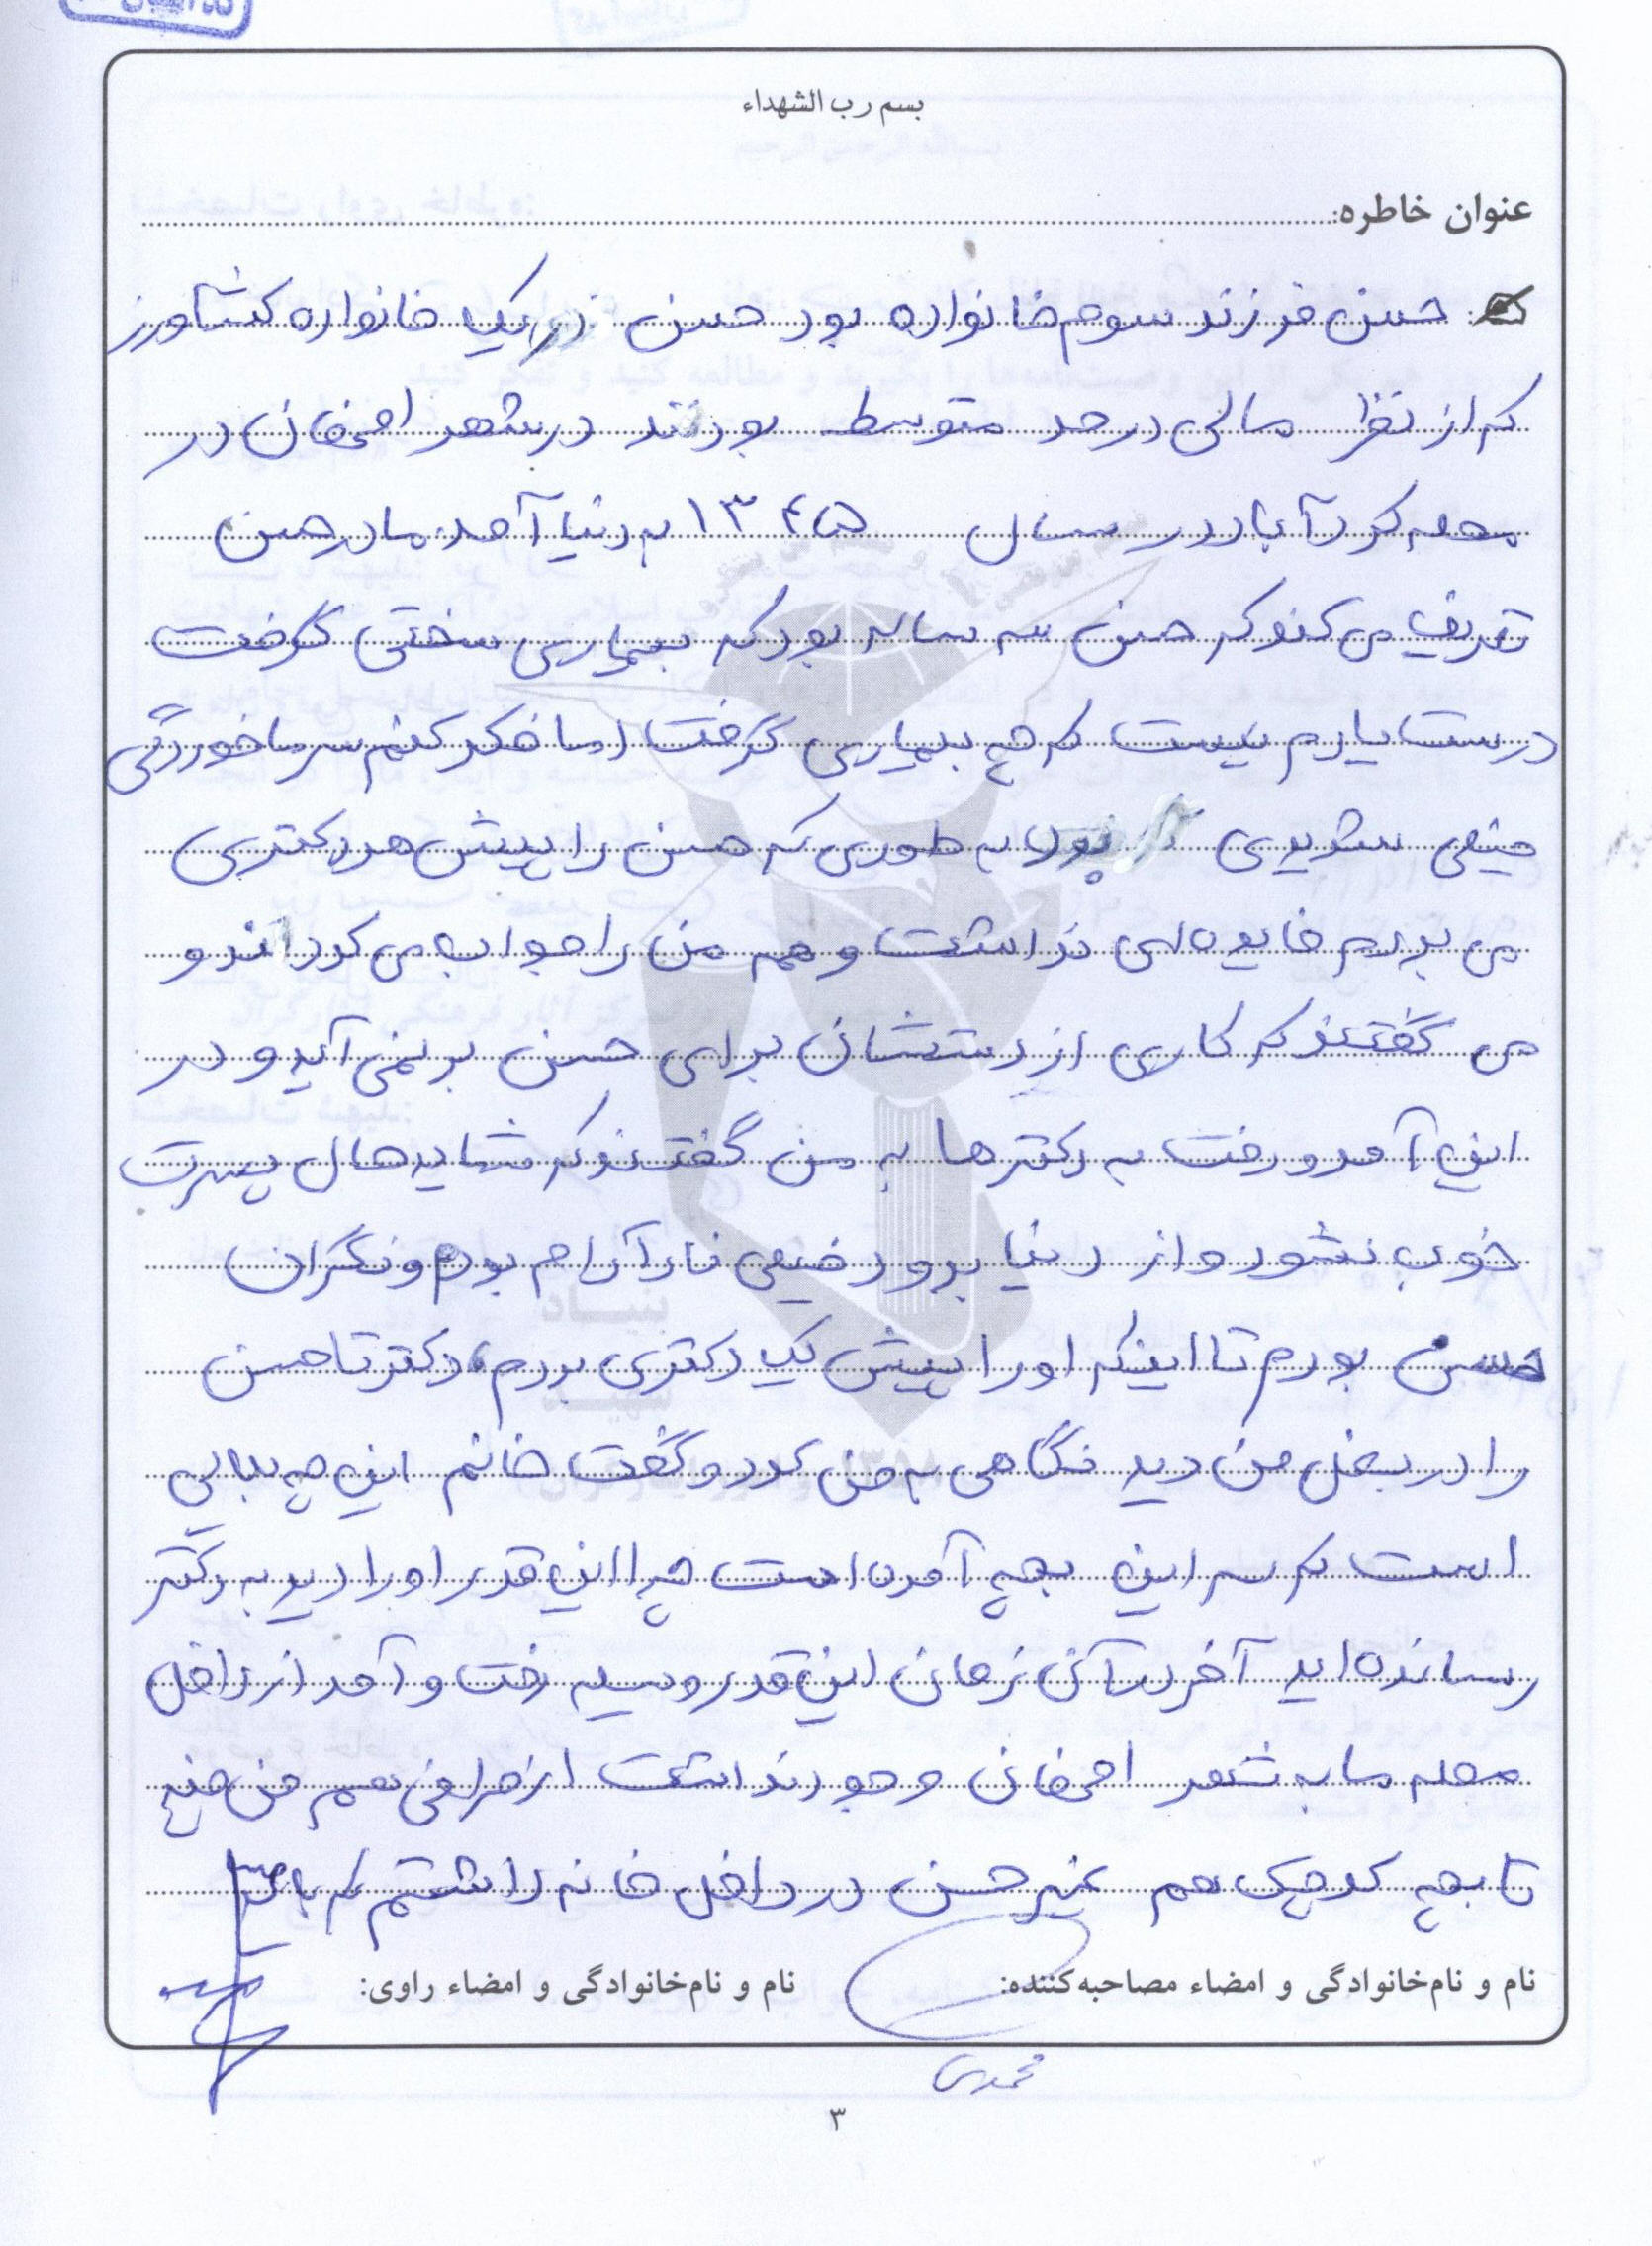 بسم رب الشهداء
عنوان خاطره:
حسن فرزند سوم خانواده بود حسن در یک خانواده کشاورز
که از نظر مالی در حد متوسط بودند در شهر اصفهان در
محله کرد آباد در سال ۱۳۴۵ به دنیا آمد. مادر حسن
تعریف می کند که حسن سه ساله بود که بیماری سختی گرفت
درست یادم نیست که چه بیماری گرفت اما فکر کنم سرماخوردگی
خیلی شدیدی بود به طوری که حسن را پیش هر دکتری
می بردم فایده ای نداشت و همه من را جواب می کردند و
می گفتند که کاری از دستشان برای حسن بر نمی آید و در
این آمد و رفت به دکترها به من گفتند که شاید حال پسرت
خوب نشود و از دنیا برود خیلی نا آرام بودم و نگران
حسن بودم تا اینکه او را پیش یک دکتری بردم، دکتر تا حسن
را در بغل من دید نگاهی به من کرد و گفت خانم این چه بلایی
است که سر این بچه آمده است چرا این قدر او را دیر به دکتر
رسانده اید آخر در آن زمان این قدر وسیله رفت و آمد از داخل
محله ما به شهر اصفهان وجود نداشت از طرفی هم من چند
تا بچه کوچک هم غیر حسن در داخل خانه داشتم که باید
نام و نام‌خانوادگی و امضاء مصاحبه‌کننده:
نام و نام‌خانوادگی و امضاء راوی:
محمدی
۳